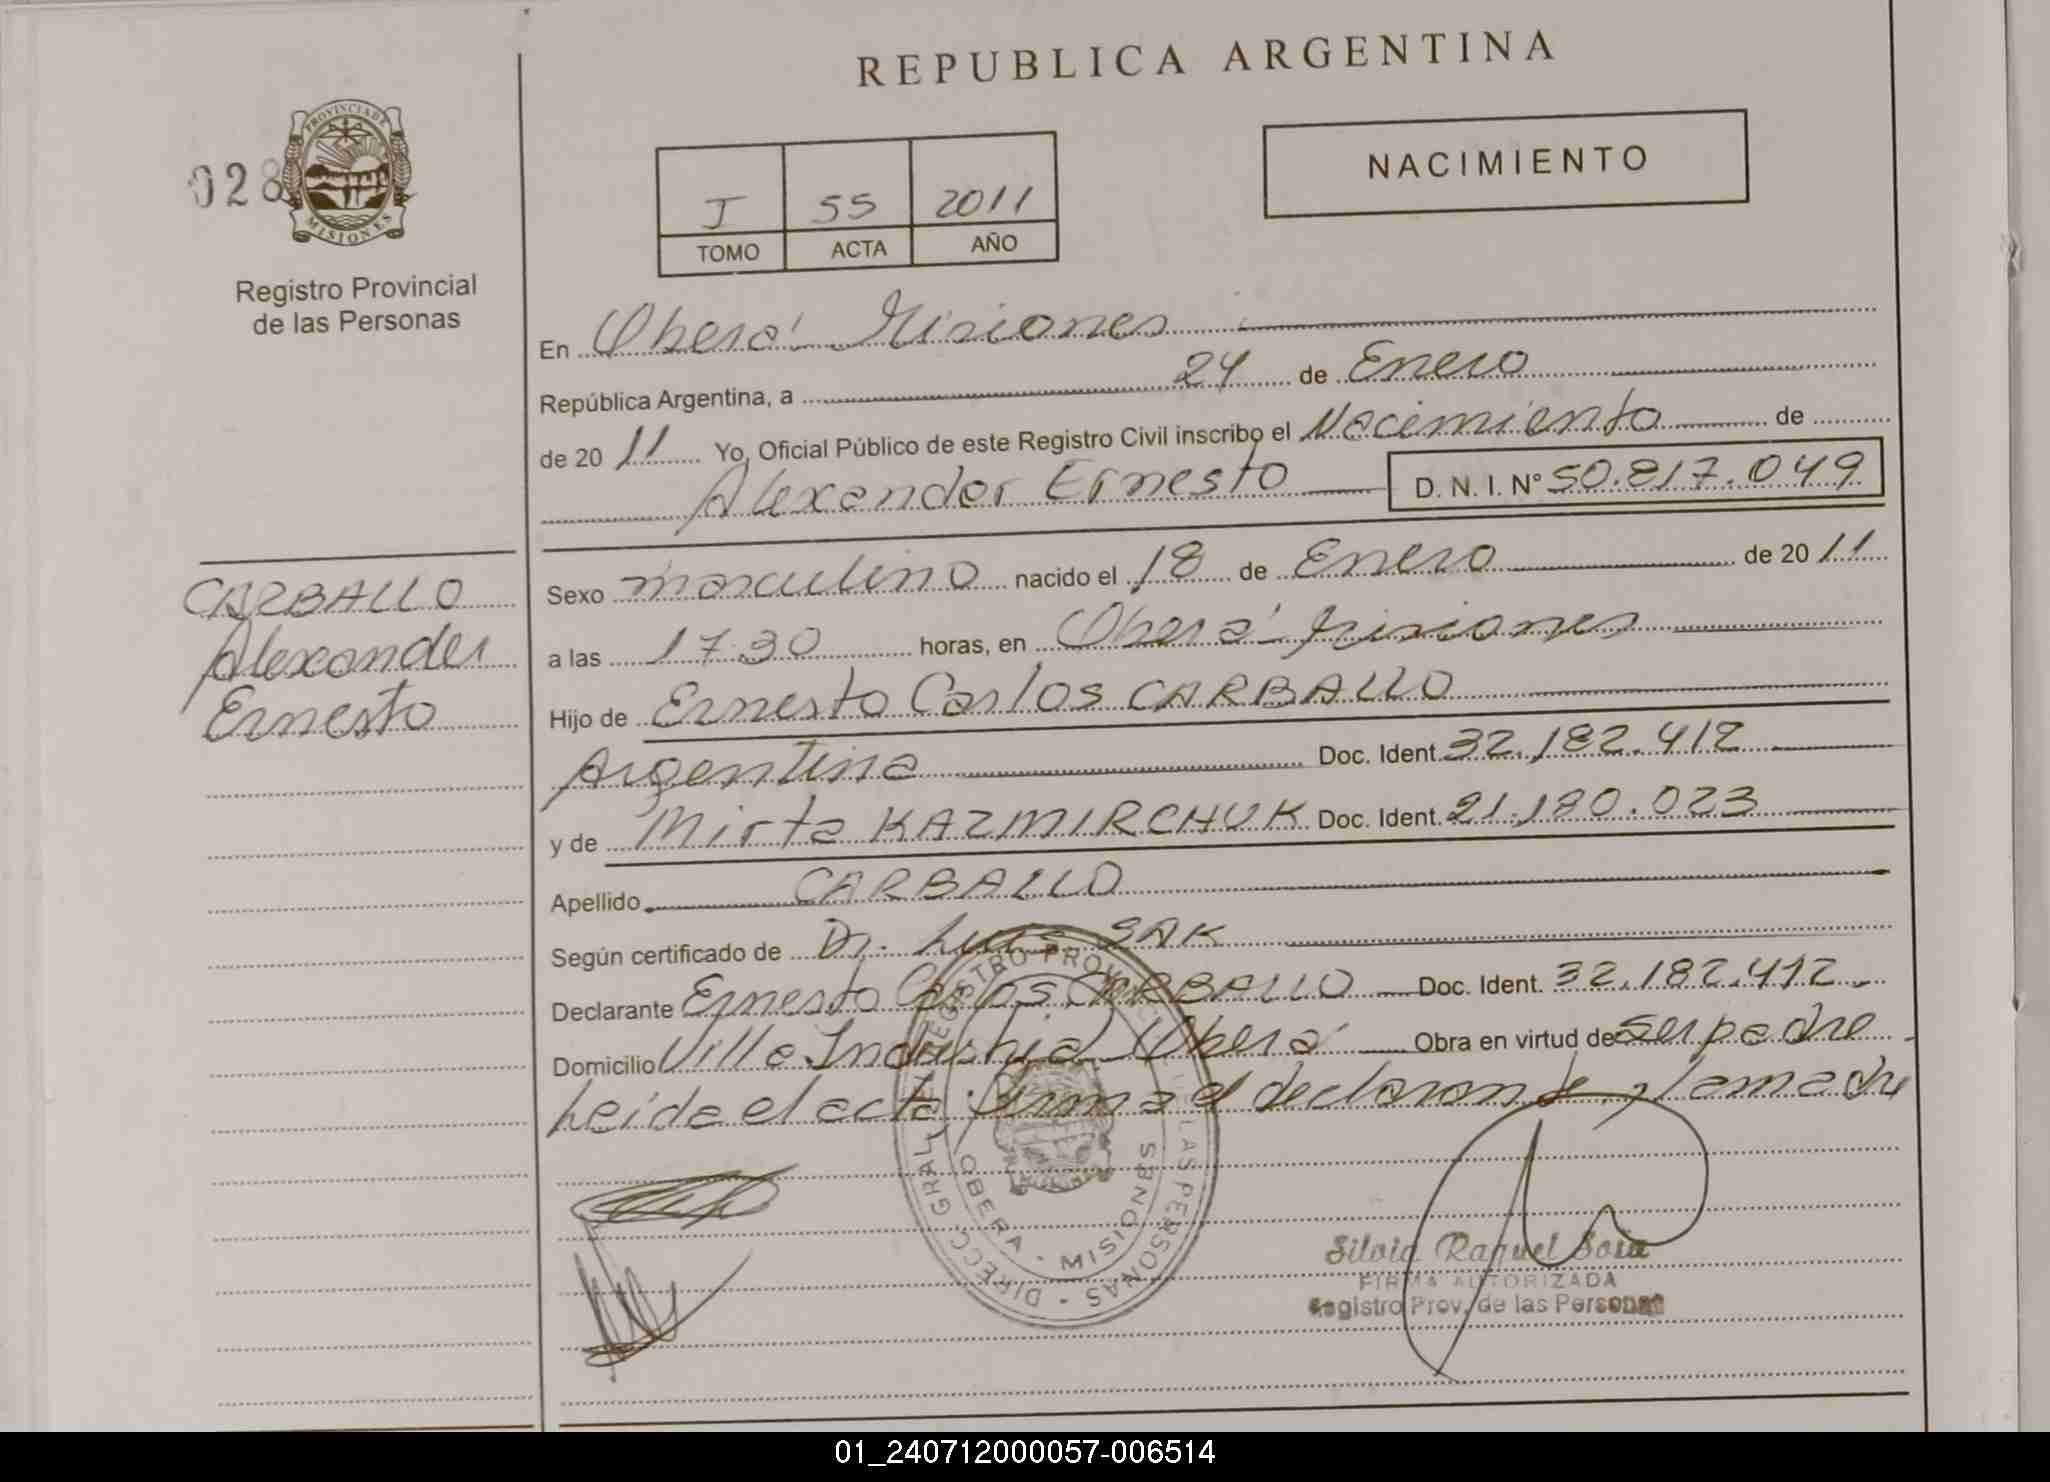 REPUBLICA ARGENTINA
028
PROVINCIA DE
MISIONES
Registro Provincial
de las Personas
NACIMIENTO
I 55 2011
TOMO ACTA AÑO
En Oberá Misiones
República Argentina, a 24 de Enero
de 20 11 Yo, Oficial Público de este Registro Civil inscribo el Nacimiento de
Alexander Ernesto D. N. I. N° 50.817.049
CARBALLO
Alexander
Ernesto
Sexo masculino nacido el 18 de Enero de 20 11
a las 17:30 horas, en Oberá Misiones
Hijo de Ernesto Carlos CARBALLO
Argentina Doc. Ident. 32.182.412
y de Mirta KAZMIRCHUK Doc. Ident. 21.180.023
Apellido CARBALLO
Según certificado de Dr. Luis SAK
Declarante Ernesto Carlos CARBALLO Doc. Ident. 32.182.412
Domicilio Villa Industrial Oberá Obra en virtud de ser padre
Leída el acta firma el declarante y la madre
DIRECC. GRAL. REGISTRO PROVINCIAL DE LAS PERSONAS
OBERA - MISIONES
Silvia Raquel Sosa
FIRMA AUTORIZADA
Registro Prov. de las Personas
01_240712000057-006514